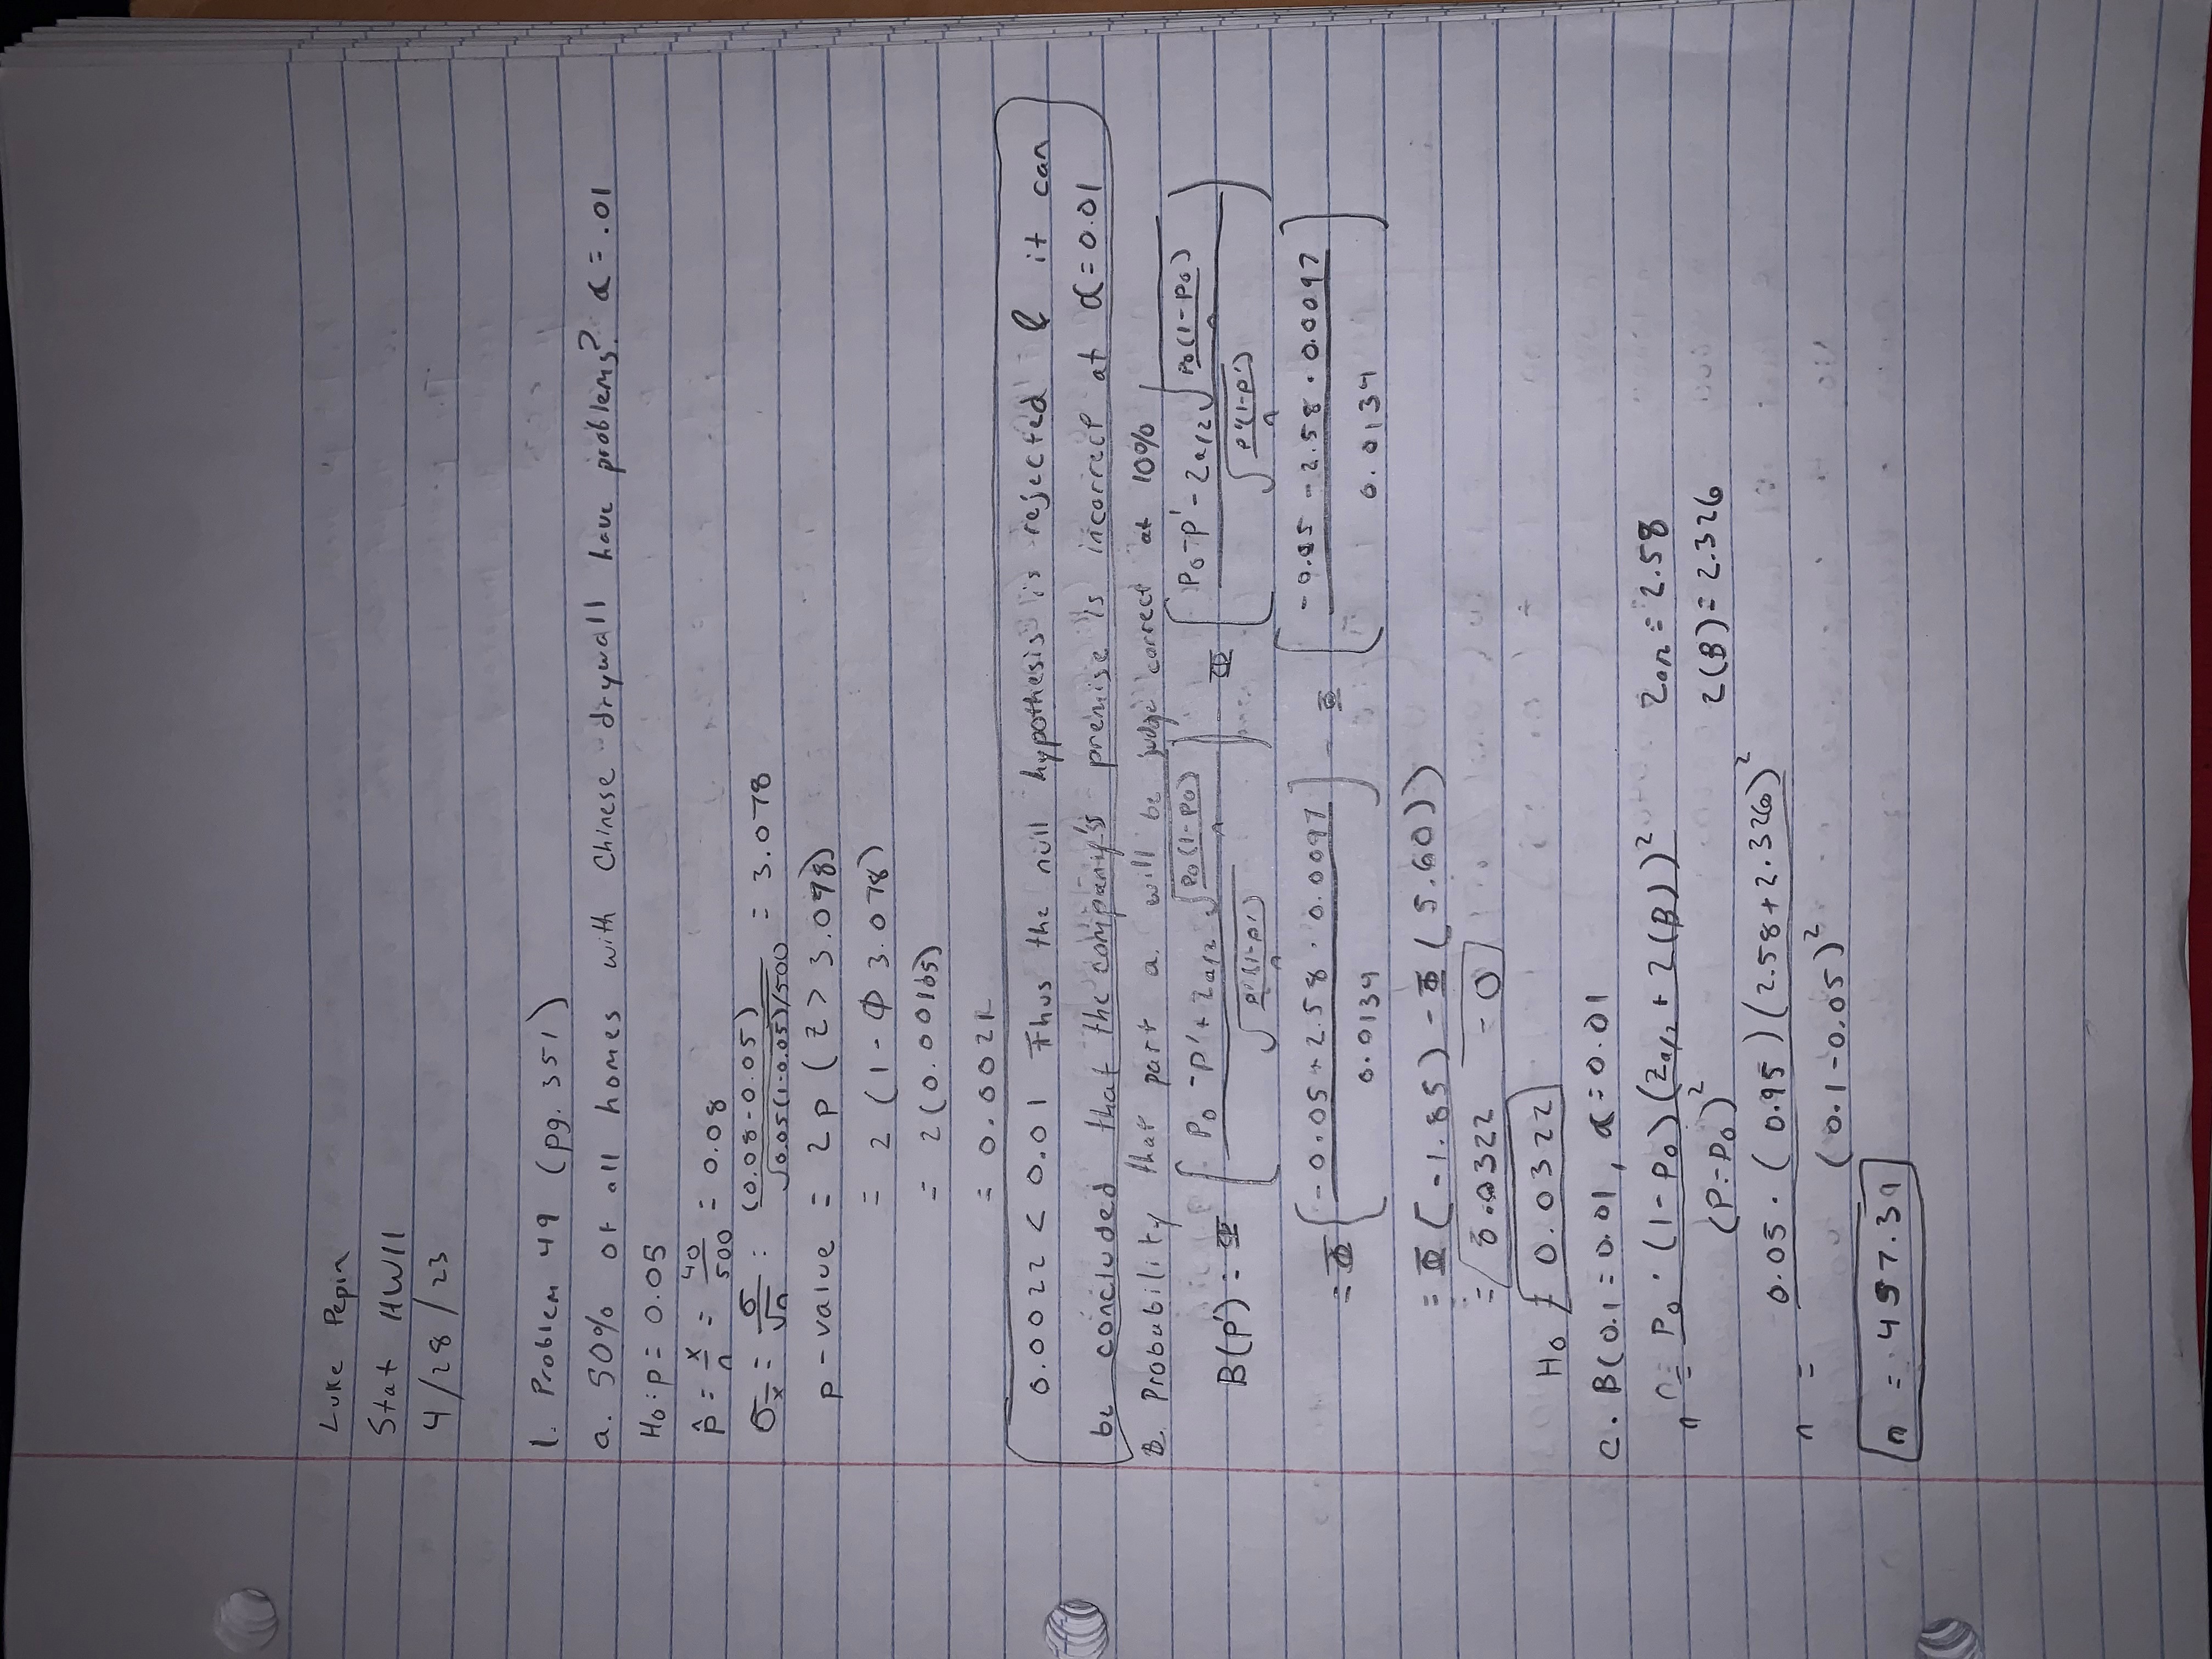 Luke Pepin
Stat HW11
4/28/23
1. Problem 49 (pg. 351)
a. 50% of all homes with Chinese drywall have problems? α = .01
H₀: p = 0.05
p̂ = x/n = 40/500 = 0.08
σx̄ = σ/√n : (0.08-0.05)/√0.05(1-0.05)/500 = 3.078
p-value = 2p (Z > 3.078)
= 2 (1 - Φ 3.078)
= 2(0.00165)
= 0.0021
0.0022 < 0.01 Thus the null hypothesis is rejected & it can
be concluded that the company's premise is incorrect at α = 0.01
B. Probability that part a. will be judge correct at 10%
B(p') = Φ [ (P₀ - P' + Zα/2 √(P₀(1-P₀)/n)) / √(P'(1-P')/n) ] - Φ [ (P₀ - P' - Zα/2 √(P₀(1-P₀)/n)) / √(P'(1-P')/n) ]
= Φ [ (-0.05 + 2.58 · 0.0097) / 0.0134 ] - Φ [ (-0.05 - 2.58 · 0.0097) / 0.0134 ]
= Φ [-1.85) - Φ (5.60))
= 0.0322 - 0
H₀ = 0.0322
C. B(0.1 = 0.01, α = 0.01
n = P₀ · (1-P₀)(Zα/2 + Z(B))² / (P - P₀)² Zα/2 = 2.58
Z(B) = 2.326
n = 0.05 · (0.95)(2.58+2.326)² / (0.1-0.05)²
n = 457.39